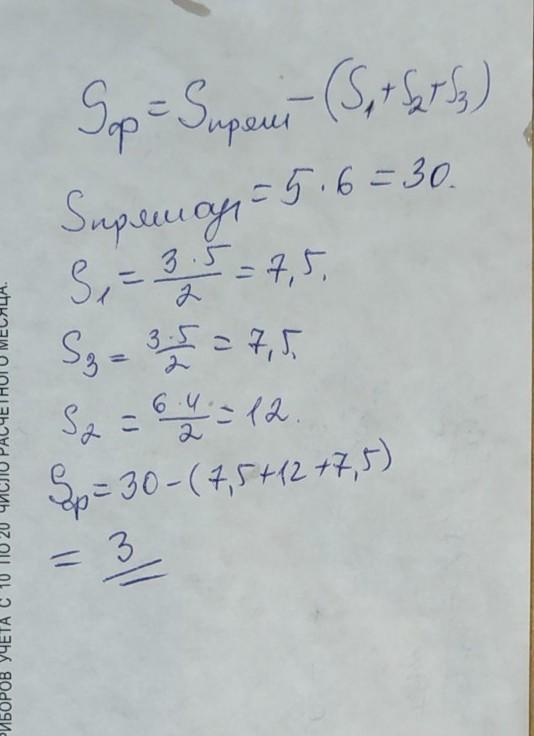 Sфр = Sпрям - (S₁+S₂+S₃)
Sпрямоуг = 5 · 6 = 30.
S₁ = 3 · 5 / 2 = 7,5.
S₃ = 3·5 / 2 = 7,5.
S₂ = 6·4 / 2 = 12.
Sфр = 30 - (7,5 + 12 + 7,5)
= 3
РИБОРОВ УЧЕТА С 10 ПО 20 ЧИСЛО РАСЧЕТНОГО МЕСЯЦА.